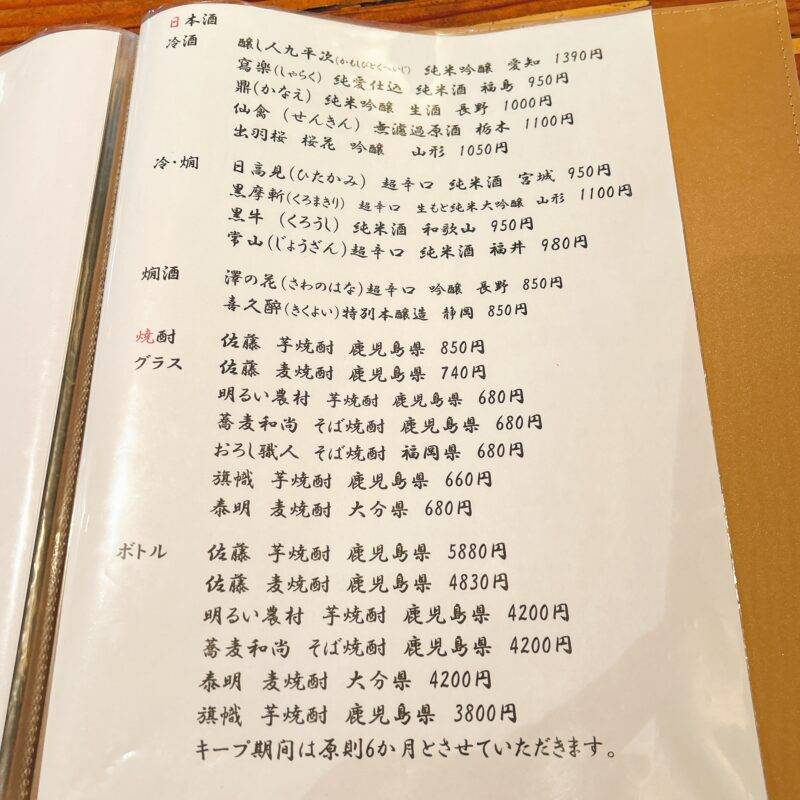 日本酒
冷酒 醸し人九平次(かもしびとくへいじ) 純米吟醸 愛知 1390円
寫楽(しゃらく) 純愛仕込 純米酒 福島 950円
鼎(かなえ) 純米吟醸 生酒 長野 1000円
仙禽 (せんきん) 無濾過原酒 栃木 1100円
出羽桜 桜花 吟醸 山形 1050円
冷・燗 日高見(ひたかみ) 超辛口 純米酒 宮城 950円
黒摩斬(くろまきり) 超辛口 生もと純米大吟醸 山形 1100円
黒牛 (くろうし) 純米酒 和歌山 950円
常山(じょうざん)超辛口 純米酒 福井 980円
燗酒 澤の花(さわのはな)超辛口 吟醸 長野 850円
喜久醉(きくよい)特別本醸造 静岡 850円
焼酎 佐藤 芋焼酎 鹿児島県 850円
グラス 佐藤 麦焼酎 鹿児島県 740円
明るい農村 芋焼酎 鹿児島県 680円
蕎麦和尚 そば焼酎 鹿児島県 680円
おろし職人 そば焼酎 福岡県 680円
旗幟 芋焼酎 鹿児島県 660円
泰明 麦焼酎 大分県 680円
ボトル 佐藤 芋焼酎 鹿児島県 5880円
佐藤 麦焼酎 鹿児島県 4830円
明るい農村 芋焼酎 鹿児島県 4200円
蕎麦和尚 そば焼酎 鹿児島県 4200円
泰明 麦焼酎 大分県 4200円
旗幟 芋焼酎 鹿児島県 3800円
キープ期間は原則6か月とさせていただきます。